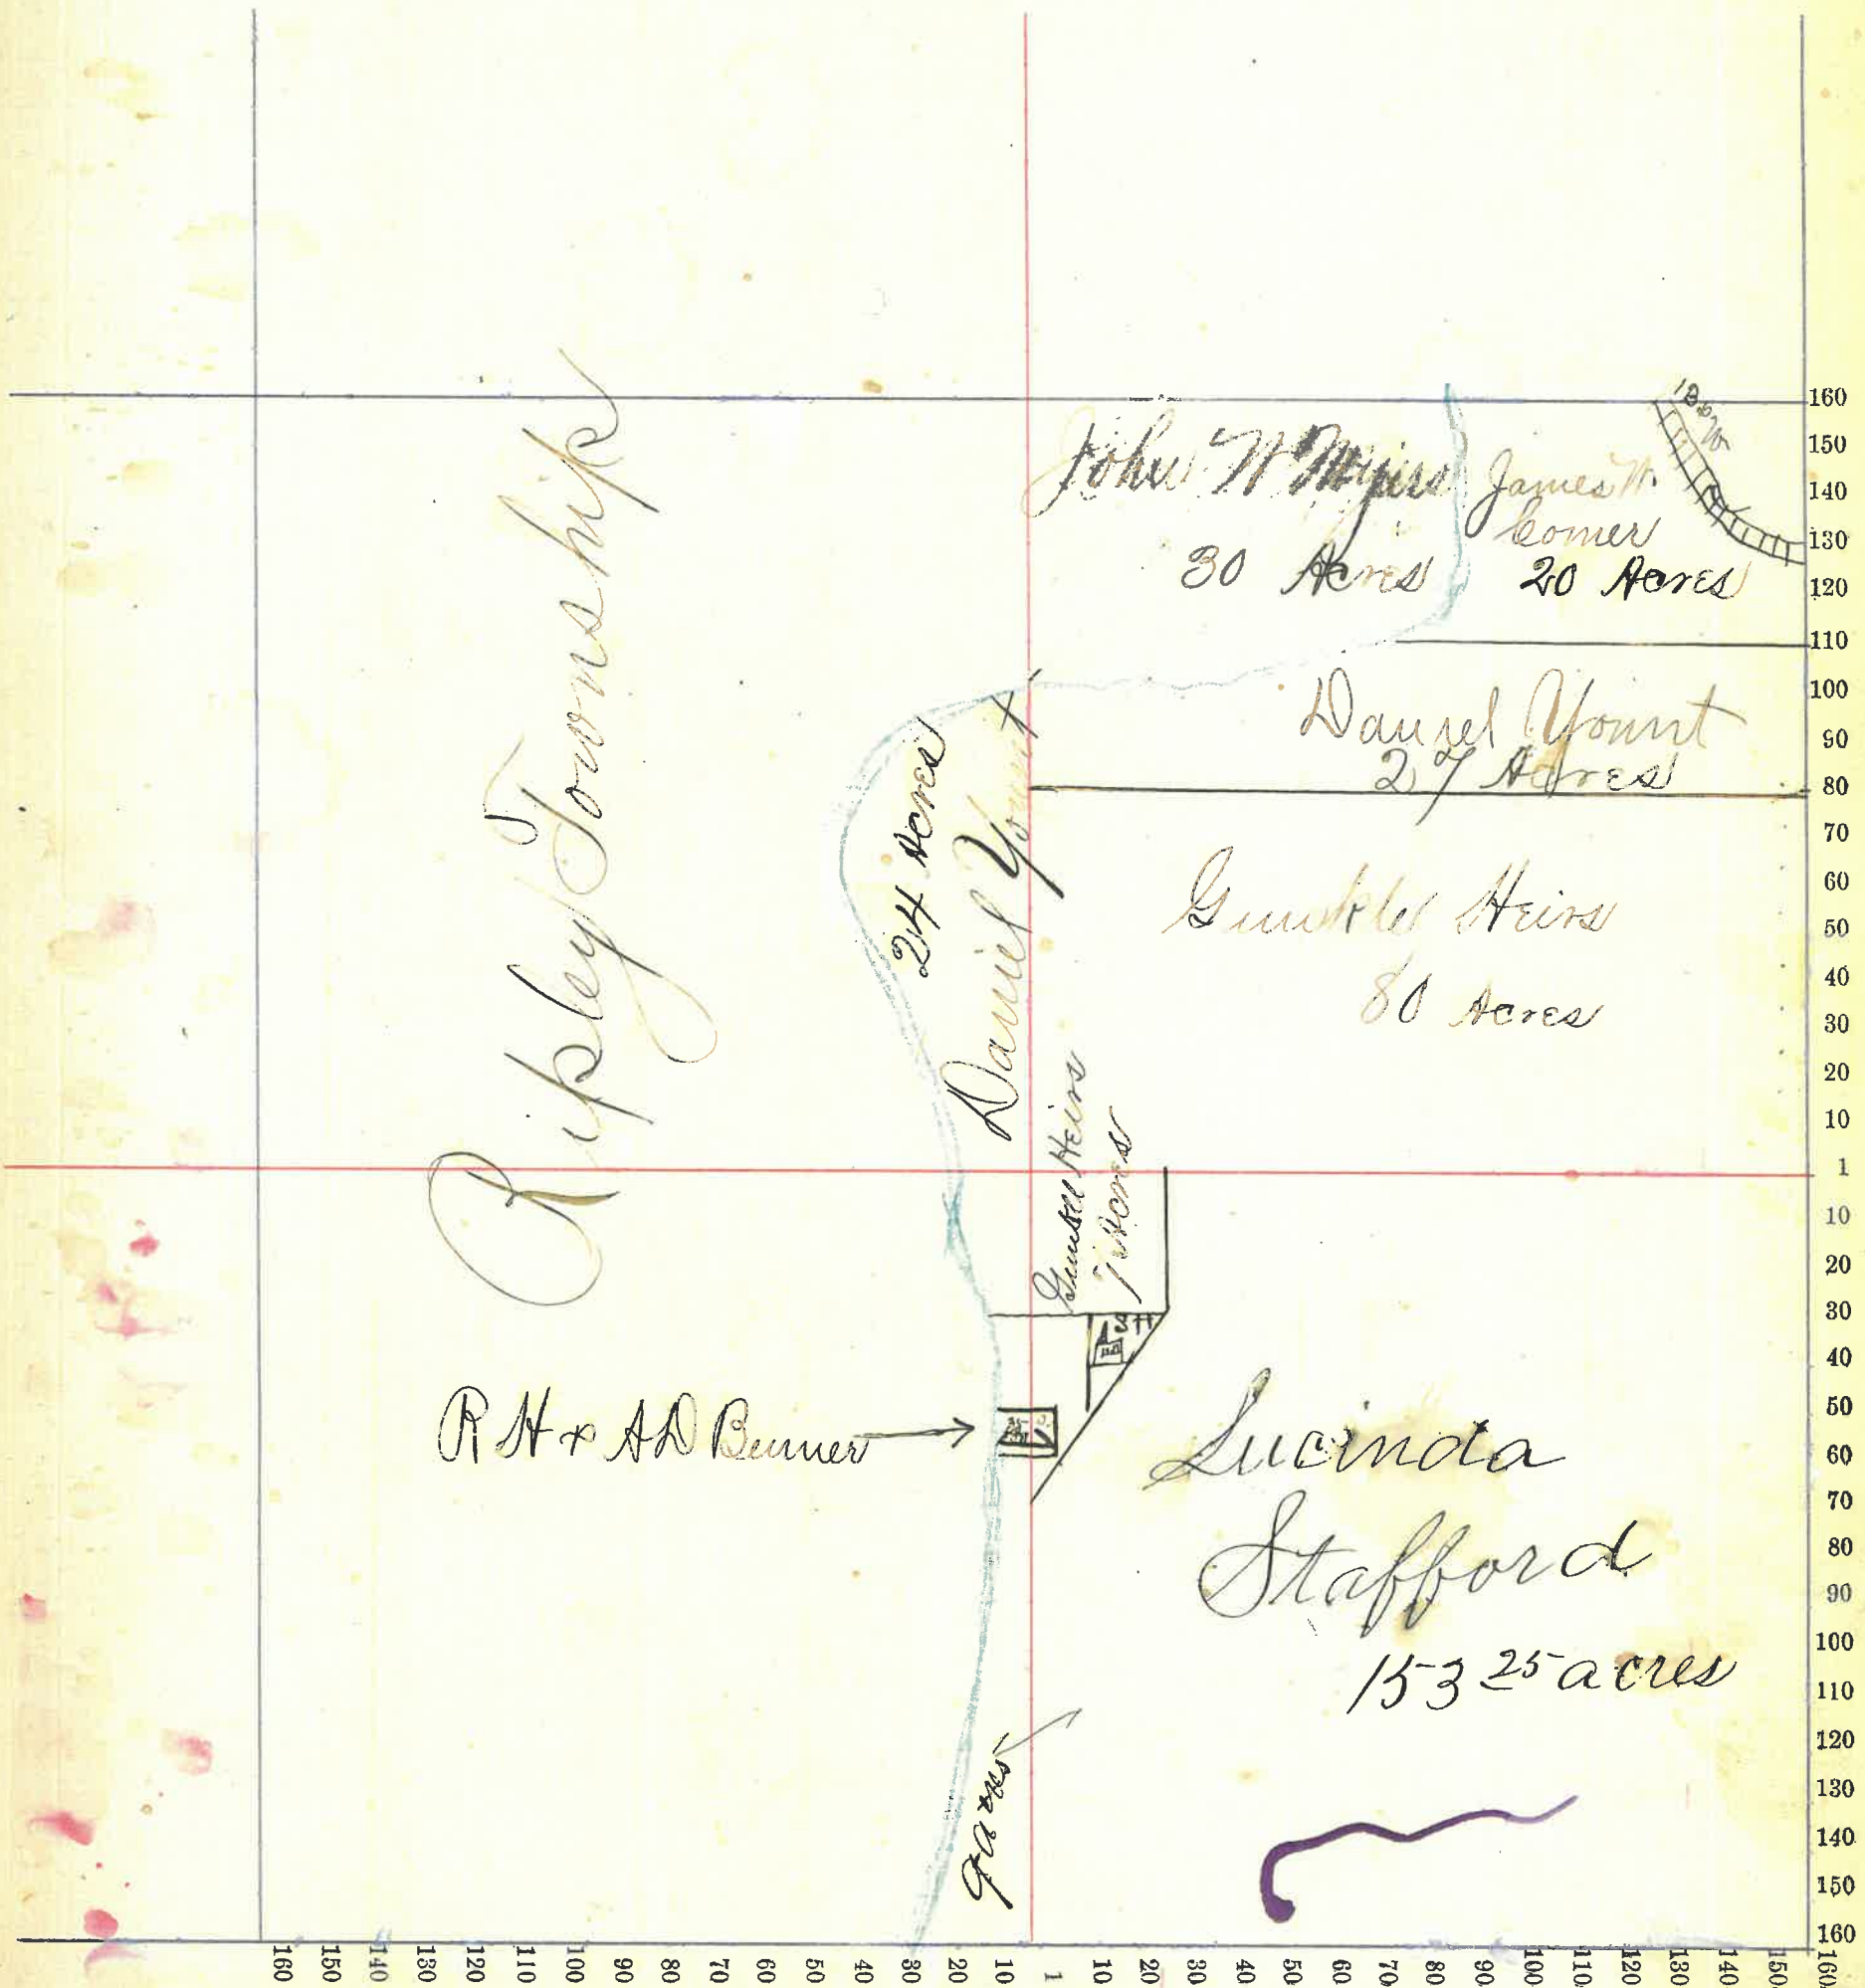 Ripley Township
John W Myers
30 Acres
James W.
Comer
20 Acres
Daniel Yount
27 Acres
24 Acres
Daniel Yount
Gunkle Heirs
80 Acres
Gunkle Heirs
7 Acres
R H & A D Burner
Lucinda
Stafford
153 25 acres
160
150
140
130
120
110
100
90
80
70
60
50
40
30
20
10
1
10
20
30
40
50
60
70
80
90
100
110
120
130
140
150
160
160 150 140 130 120 110 100 90 80 70 60 50 40 30 20 10 1 10 20 30 40 50 60 70 80 90 100 110 120 130 140 150 160